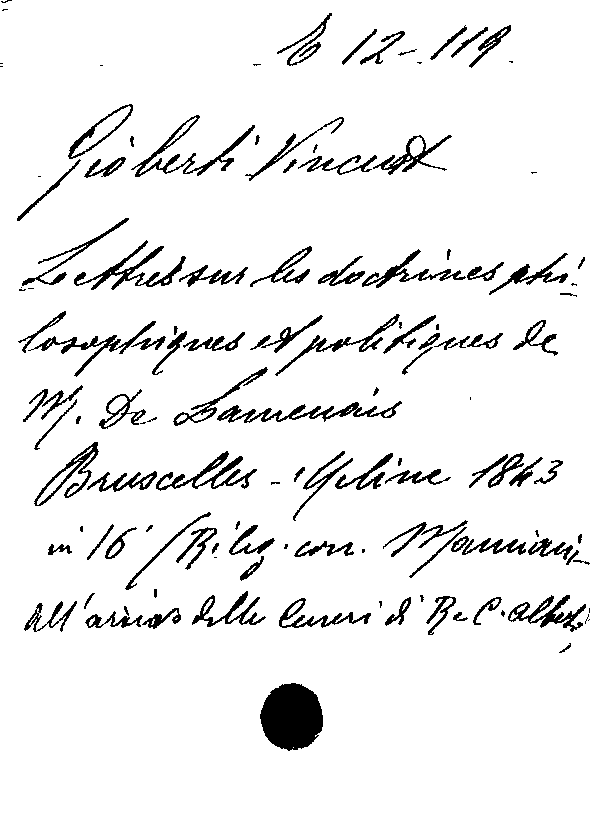 E 12-119
Gioberti Vincent
Lettres sur les doctrines phi-
losophiques et politiques de
M. De Lamenais
Bruscelles - Meline 1843
in 16° (Rileg. con. Mamiani-
All'arrivo delle Ceneri di Re C. Alberto